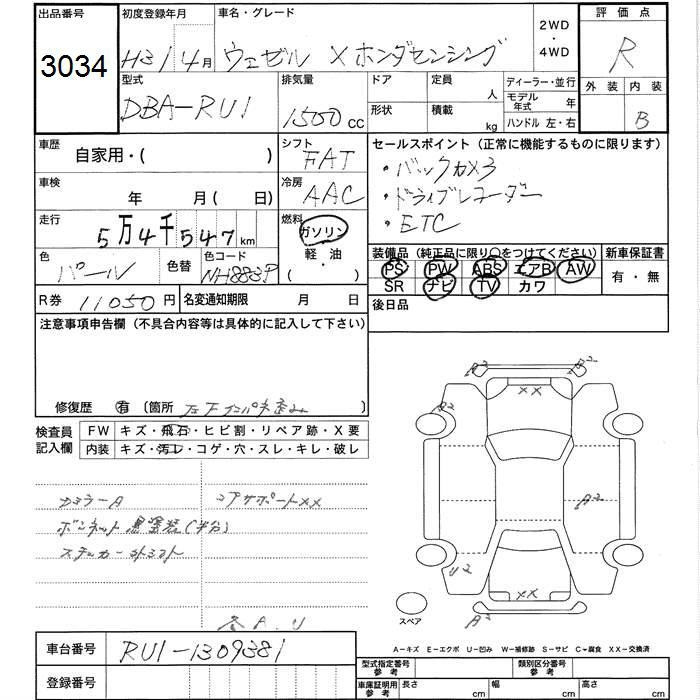 出品番号 初度登録年月 車名・グレード 2WD・4WD 評価点
3034 H31 4月 ヴェゼル Xホンダセンシング R
型式 排気量 ドア 定員 人 ディーラー・並行 外装 内装
DBA-RU1 1500cc 形状 積載 kg モデル年式 年 B
ハンドル 左・右
車歴 自家用・( ) シフト FAT セールスポイント(正常に機能するものに限ります)
・バックカメラ
車検 年 月( 日) 冷房 AAC ・ドライブレコーダー
・ETC
走行 5万4千547km 燃料 ガソリン 軽・油 ( )
装備品(純正品に限り○をつけてください) 新車保証書
色 パール 色替 色コード NH883P PS PW ABS エアB AW 有・無
SR ナビ TV カワ
R券 11050円 名変通知期限 月 日 後日品
注意事項申告欄(不具合内容等は具体的に記入して下さい)
修復歴 有 (箇所 )
検査員記入欄 FW キズ・飛石・ヒビ割・リペア跡・X要
内装 キズ・汚レ・コゲ・穴・スレ・キレ・破レ
コアサポートXX
ボンネット黒塗装(半分)
ステッカー
A2 A2
XX
A2
A2
U2
XX
A2
スペア
各A.U
A-キズ E-エクボ U-凹み W-補修跡 S-サビ C-腐食 XX-交換済
車台番号 RU1-1309381
型式指定番号 参考 類別区分番号 参考
登録番号
車庫証明用 参考 長さ cm 幅 cm 高さ cm